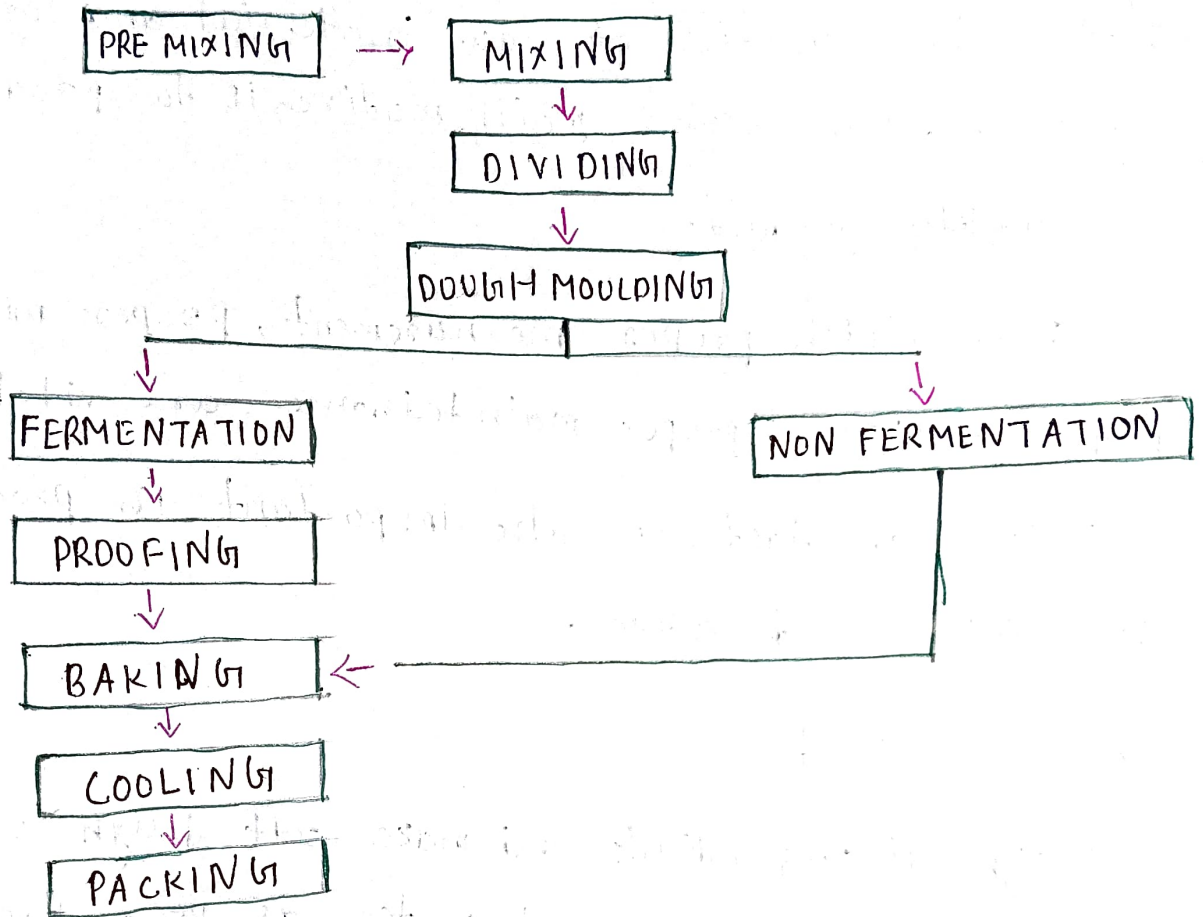 PRE MIXING
MIXING
DIVIDING
DOUGH MOULDING
FERMENTATION
NON FERMENTATION
PROOFING
BAKING
COOLING
PACKING